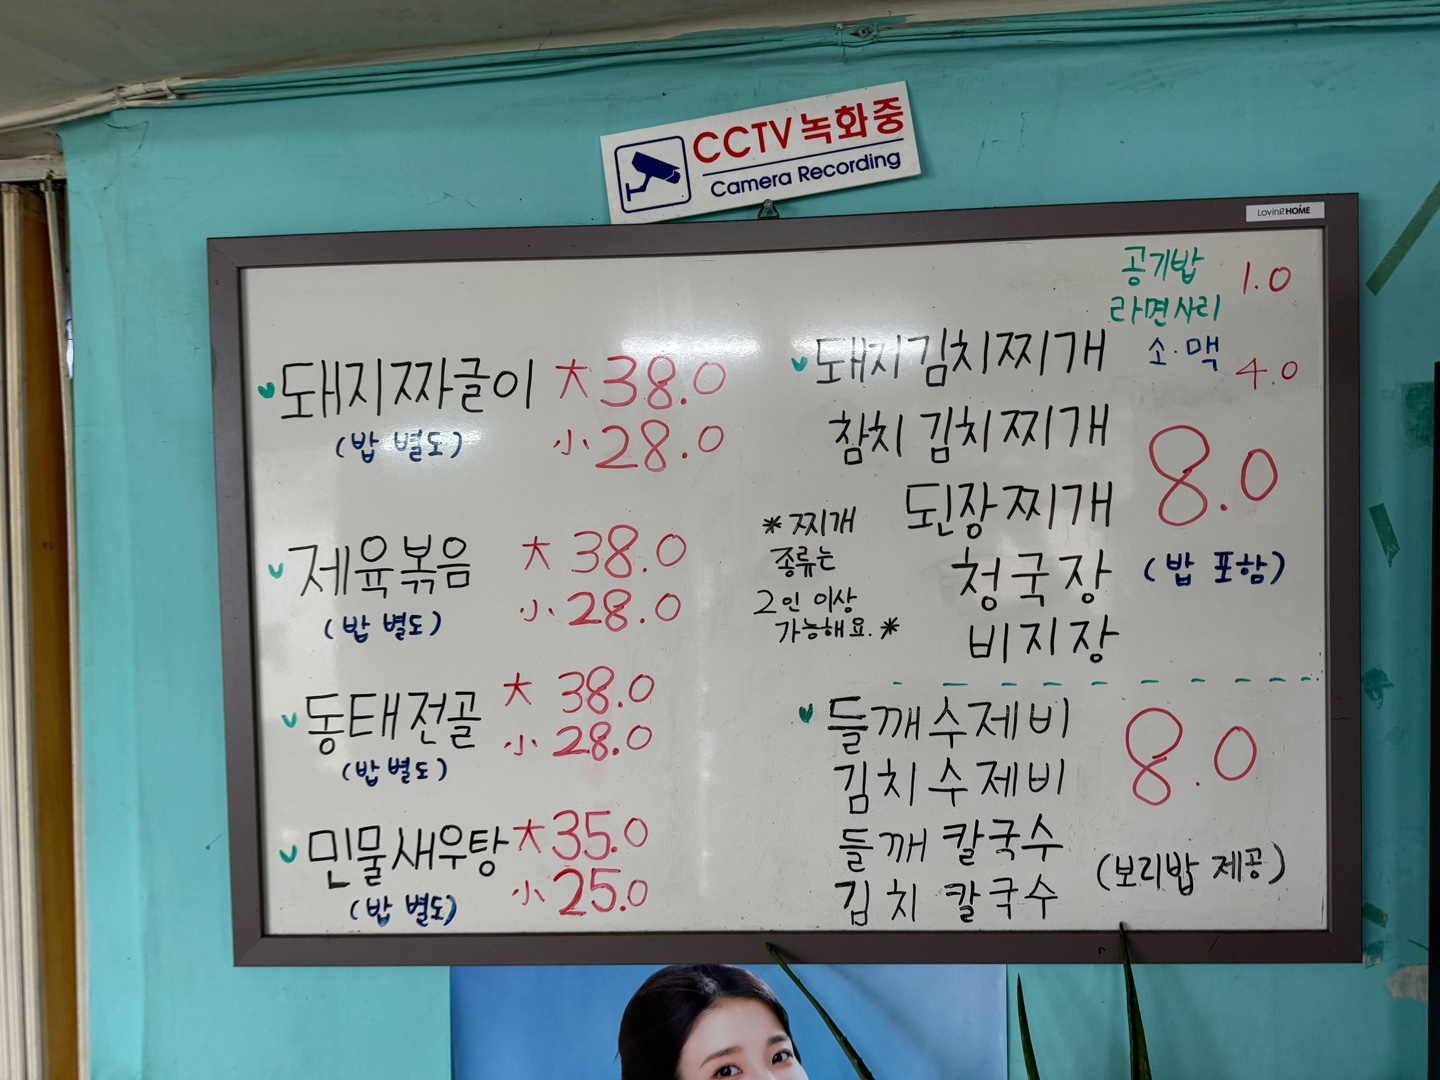 CCTV녹화중
Camera Recording
Loving HOME
공기밥 1.0
라면사리
소·맥 4.0
돼지짜글이 大 38.0
(밥 별도) 小 28.0
제육볶음 大 38.0
(밥 별도) 小 28.0
동태전골 大 38.0
小 28.0
(밥 별도)
민물새우탕 大 35.0
小 25.0
(밥 별도)
돼지김치찌개
참치김치찌개
된장찌개
청국장
비지장
8.0
(밥 포함)
*찌개
종류는
2인 이상
가능해요.*
들깨수제비
김치수제비
들깨 칼국수
김치 칼국수
8.0
(보리밥 제공)